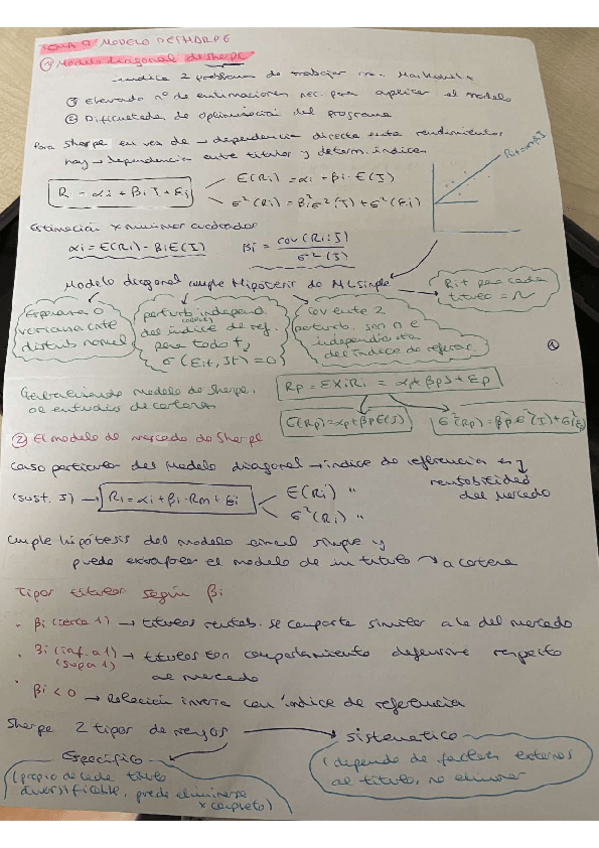 TEMA 9 MODELO DE SHARPE
① Modelo diagonal de Sharpe
indica 2 problemas de trabajar con Markowitz
① Elevado nº de estimaciones nec. para aplicar el modelo
② Dificultades de optimización del programa
Para Sharpe en vez de → dependencia directa entre rendimientos
hay → dependencia entre títulos y determ. índices
Rit = α+βJ
R = αi + βi J + εi
E(Ri) = αi - βi · E(J)
σ²(Ri) = βi² σ²(J) + σ²(εi)
Estimación x mínimos cuadrados
αi = E(Ri) - βi E(J)
βi = cov(Ri; J) / σ²(J)
Modelo diagonal cumple Hipótesis de ML simple
Rit para cada título = N
Esperanza 0
varianza cnte
distrib normal
perturb. independ.
del índice de ref.
para todo t,
σ(εit, Jt) = 0
Cov entre 2
perturb. son n e
independientes
del índice de referenc.
①
Generalizando modelo de Sharpe,
al estudio de carteras
Rp = ΣXiRi = αp + βpJ + Ep
E(Rp) = αp + βpE(J)
σ²(Rp) = βp² σ²(J) + σ²(εp)
② El modelo de mercado de Sharpe
Caso particular del Modelo diagonal → índice de referencia es
rentabilidad
del mercado
(sust. J) → Ri = αi + βi · Rm + εi
E(Ri) "
σ²(Ri) "
Cumple hipótesis del modelo lineal simple y
puede extrapolar el modelo de un título → a cartera
Tipos títulos según βi
· βi (cerca 1) → títulos rentab. se comporta similar a la del mercado
· βi (inf. a 1) → títulos con comportamiento defensivo respecto
(sup a 1) al mercado
· βi < 0 → Relación inversa con índice de referencia
Sharpe 2 tipos de riesgos → sistemático
Específico
(propio de cada título
diversificable, puede eliminarse
x completo)
(depende de factores externos
al título, no eliminar